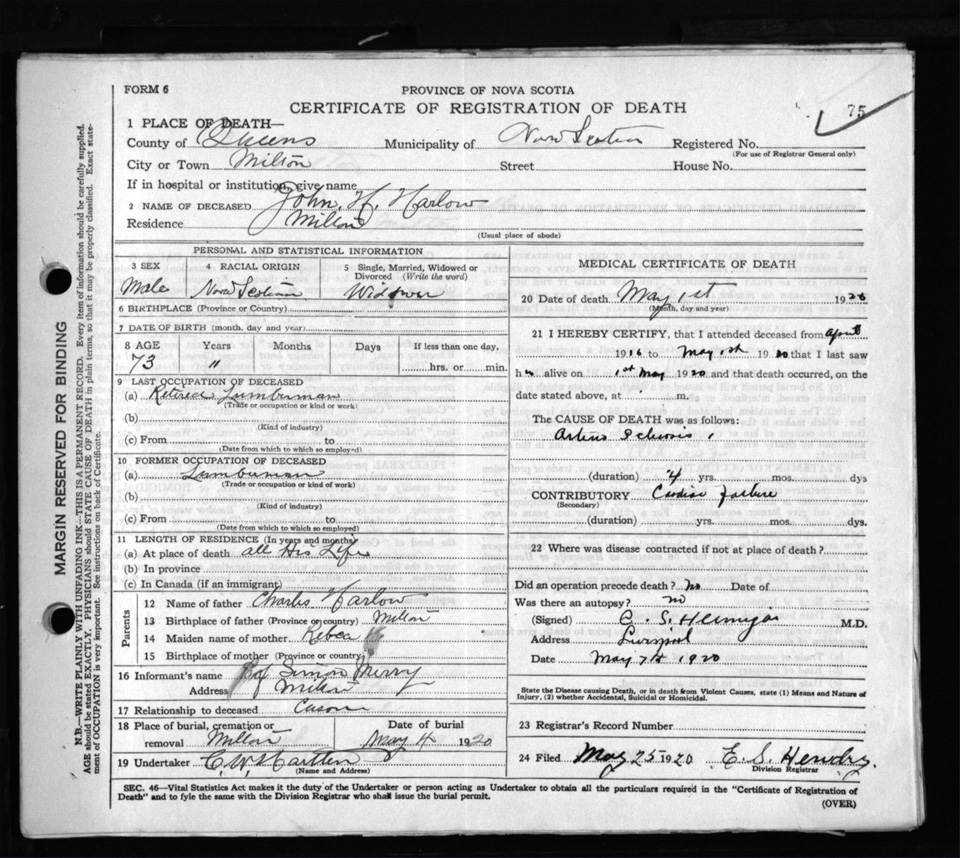 FORM 6
PROVINCE OF NOVA SCOTIA
CERTIFICATE OF REGISTRATION OF DEATH
75
1 PLACE OF DEATH—
County of Queens Municipality of Nova Scotia Registered No.
(For use of Registrar General only)
City or Town Milton Street House No.
If in hospital or institution, give name
2 NAME OF DECEASED John H. Harlow
Residence Milton
(Usual place of abode)
PERSONAL AND STATISTICAL INFORMATION
3 SEX
Male
4 RACIAL ORIGIN
Nova Scotian
5 Single, Married, Widowed or Divorced (Write the word)
Widower
6 BIRTHPLACE (Province or Country)
7 DATE OF BIRTH (month, day and year)
8 AGE Years Months Days If less than one day,
73 " hrs. or min.
9 LAST OCCUPATION OF DECEASED
(a) Retired Lumberman
(Trade or occupation or kind or work)
(b)
(Kind of industry)
(c) From to
(Date from which to which so employed)
10 FORMER OCCUPATION OF DECEASED
(a) Lumberman
(Trade or occupation or kind of work)
(b)
(Kind of industry)
(c) From to
(Date from which to which so employed)
11 LENGTH OF RESIDENCE (In years and months)
(a) At place of death all His Life
(b) In province
(c) In Canada (if an immigrant)
Parents
12 Name of father Charles Harlow
13 Birthplace of father (Province or country) Milton
14 Maiden name of mother Rebca
15 Birthplace of mother (Province or country)
16 Informant's name Simon Merry
Address Milton
17 Relationship to deceased Cuson
18 Place of burial, cremation or removal Milton
Date of burial
May 4 1920
19 Undertaker C. W.
(Name and Address)
MEDICAL CERTIFICATE OF DEATH
20 Date of death May 1st 1920
(Month, day and year)
21 I HEREBY CERTIFY, that I attended deceased from April
1916 to May 1st 1920 that I last saw
h alive on 1st May 1920 and that death occurred, on the
date stated above, at m.
The CAUSE OF DEATH was as follows:
(duration) 4 yrs. mos. dys
CONTRIBUTORY
(Secondary)
(duration) yrs. mos. dys.
22 Where was disease contracted if not at place of death?
Did an operation precede death? No Date of
Was there an autopsy? no
(Signed) M.D.
Address Liverpool
Date May 1920
State the Disease causing Death, or in death from Violent Causes, state (1) Means and Nature of Injury, (2) whether Accidental, Suicidal or Homicidal.
23 Registrar's Record Number
24 Filed May 25 1920 E. S. Hendry.
Division Registrar
SEC. 46—Vital Statistics Act makes it the duty of the Undertaker or person acting as Undertaker to obtain all the particulars required in the "Certificate of Registration of
Death" and to fyle the same with the Division Registrar who shall issue the burial permit.
(OVER)
MARGIN RESERVED FOR BINDING
N.B.—WRITE PLAINLY WITH UNFADING INK—THIS IS A PERMANENT RECORD. Every item of information should be carefully supplied.
AGE should be stated EXACTLY. PHYSICIANS should STATE CAUSE OF DEATH in plain terms, so that it may be properly classified. Exact state-
ment of OCCUPATION is very important. See instructions on back of Certificate.